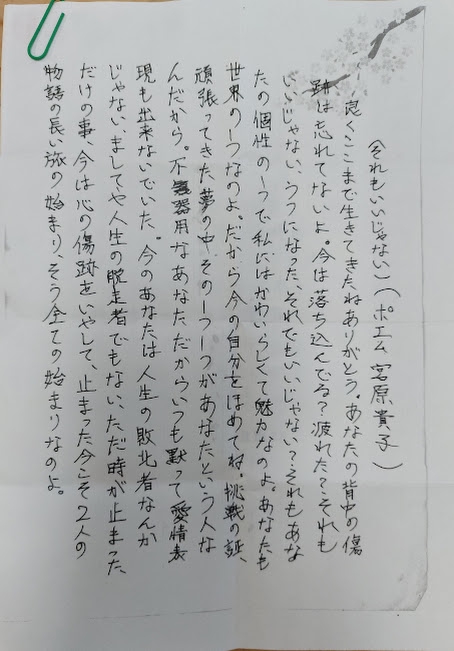 (それもいいじゃない)(ポエム 宮原貴子)
良くここまで生きてきたねありがとう。あなたの背中の傷
跡は忘れてないよ。今は落ち込んでる?疲れた?それも
いいじゃない、うつになった、それでもいいじゃない?それもあな
たの個性の一つで私にはかわいらしくて魅力なのよ。あなたも
世界の一つなのよ。だから今の自分をほめてね。挑戦の証、
頑張ってきた夢の中、その一つ一つがあなたという人な
んだから。不器用なあなた、だからいつも黙って愛情表
現も出来ないでいた。今のあなたは人生の敗北者なんか
じゃない、ましてや人生の脱走者でもない、ただ時が止まった、
だけの事、今は心の傷跡をいやして、止まった今こそ2人の
物語の長い旅の始まり、そう全ての始まりなのよ。